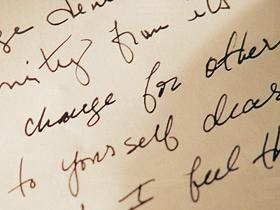 from its
change for other
to yourself dear
I feel th